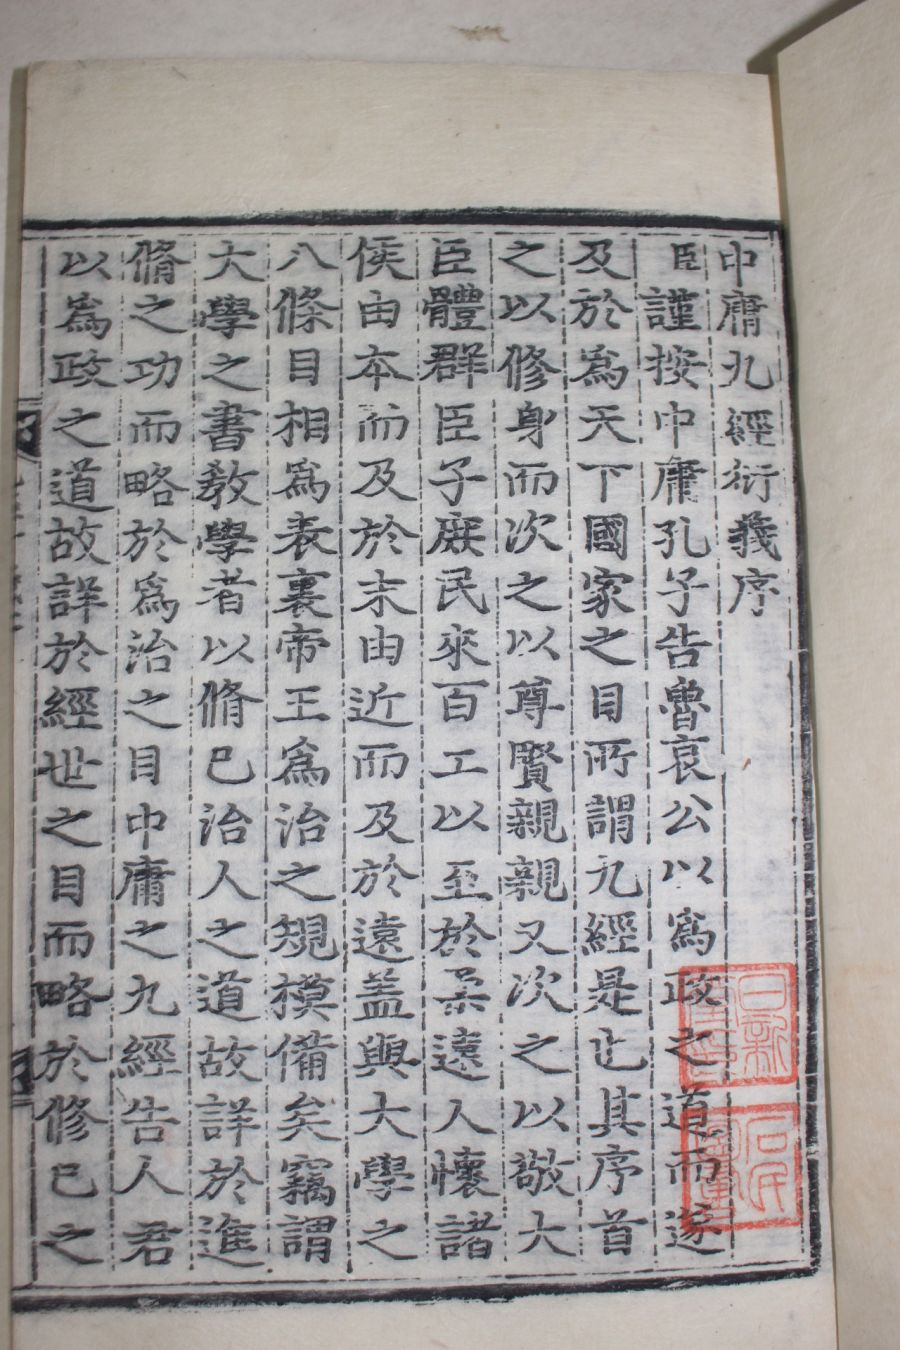 中庸九經衍義序
臣謹按中庸孔子告魯哀公以爲政之道而遂
及於爲天下國家之目所謂九經是也其序首
之以修身而次之以尊賢親親又次之以敬大
臣體群臣子庶民來百工以至於柔遠人懷諸
侯由本而及於末由近而及於遠盖與大學之
八條目相爲表裏帝王爲治之規模備矣竊謂
大學之書教學者以脩己治人之道故詳於進
脩之功而略於爲治之目中庸之九經告人君
以爲政之道故詳於經世之目而略於修己之